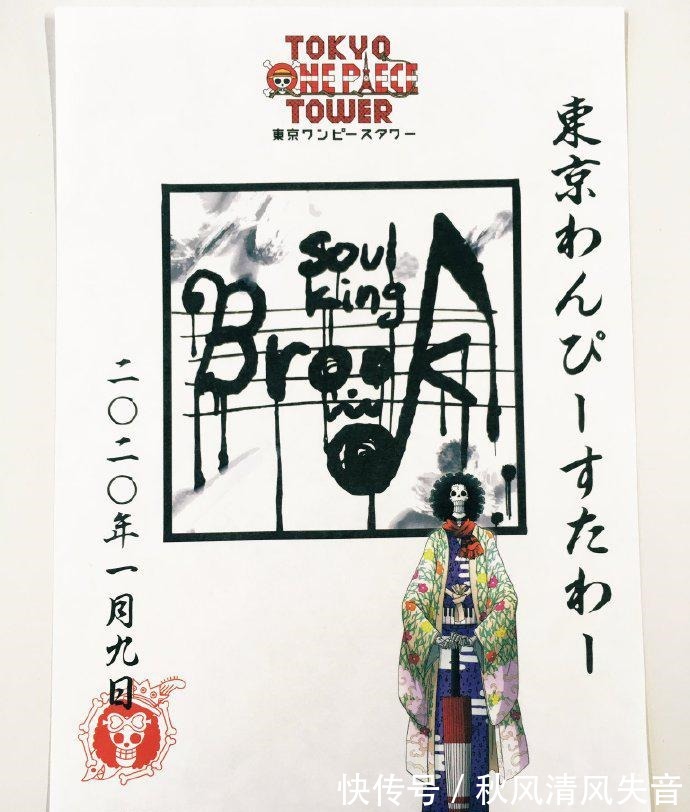 TOKYO
ONE PIECE
TOWER
東京ワンピースタワー
東京わんぴーすたわー
Soul
King
Brook
二〇二〇年一月九日
快传号 / 秋风清风失音